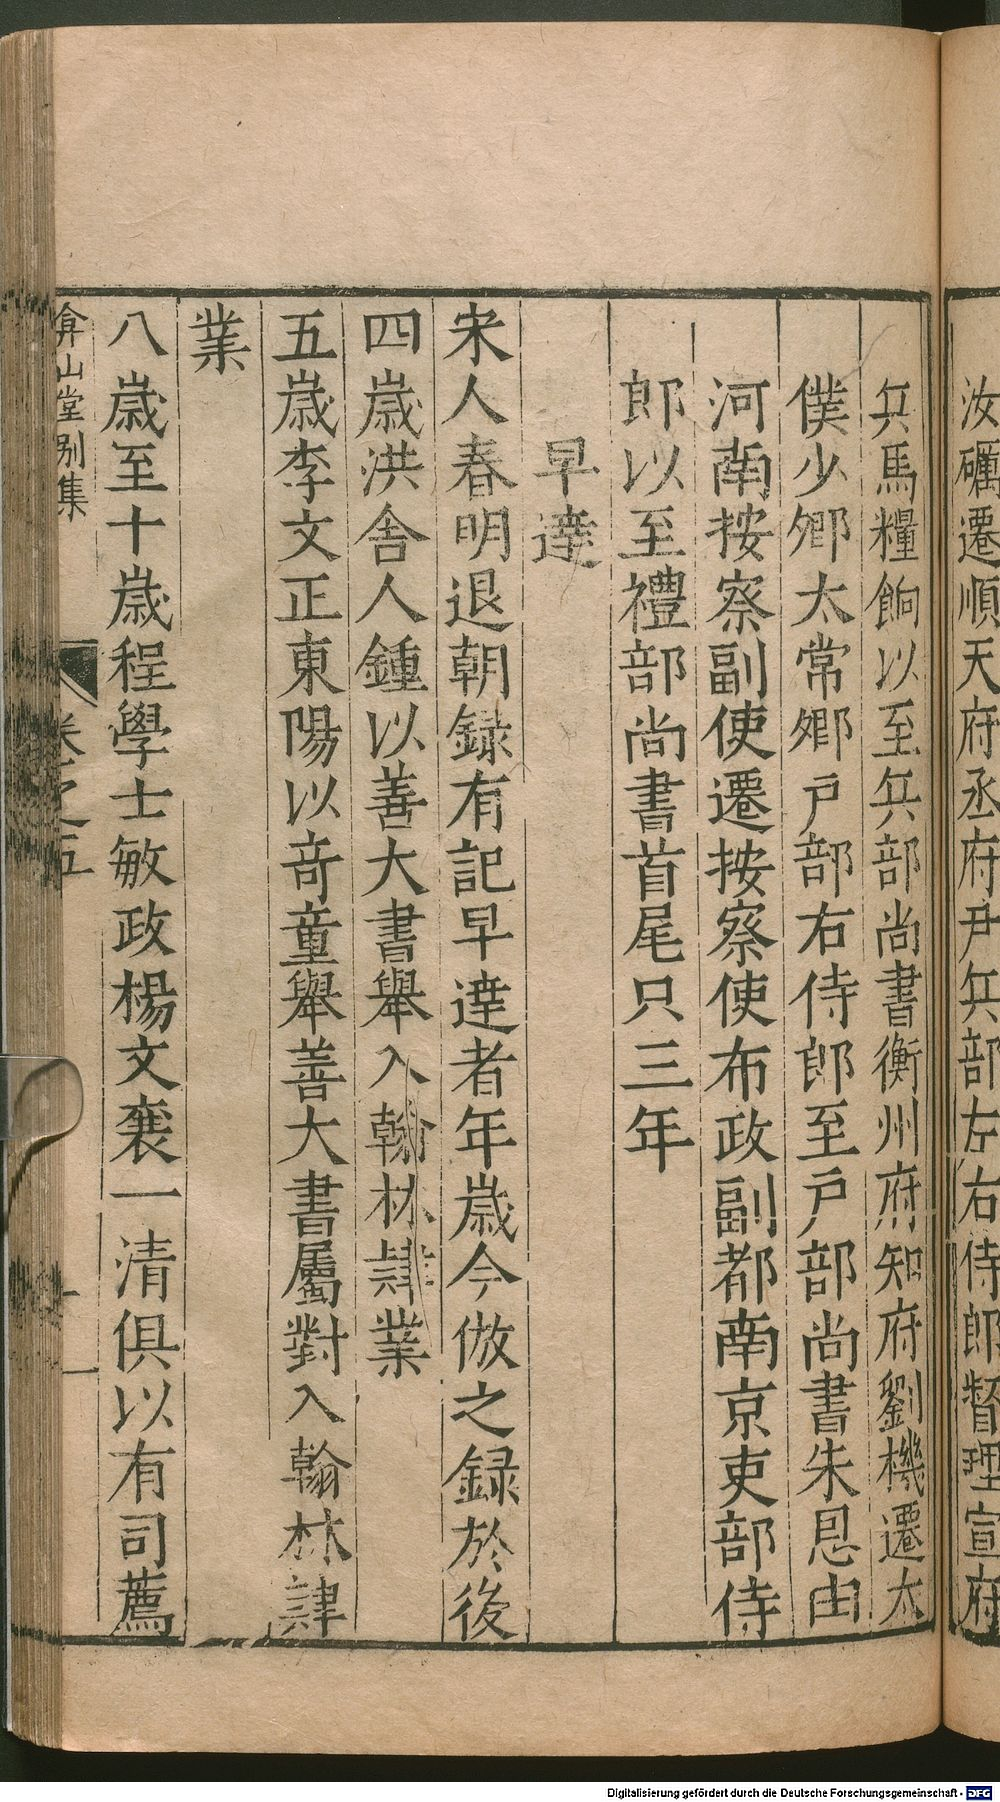 汝礪遷順天府丞府尹兵部左右侍郎督理宣府
兵馬糧餉以至兵部尚書衡州府知府劉機遷太
僕少卿太常卿戶部右侍郎至戶部尚書朱恩由
河南按察副使遷按察使布政副都南京吏部侍
郎以至禮部尚書首尾只三年
早達
宋人春明退朝録有記早達者年歳今倣之録於後
四歳洪舍人鍾以善大書舉入翰林肄業
五歳李文正東陽以奇童舉善大書屬對入翰林肄
業
八歳至十歳程學士敏政楊文襄一清俱以有司薦
弇山堂别集
卷之五
十一
Digitalisierung gefördert durch die Deutsche Forschungsgemeinschaft - DFG